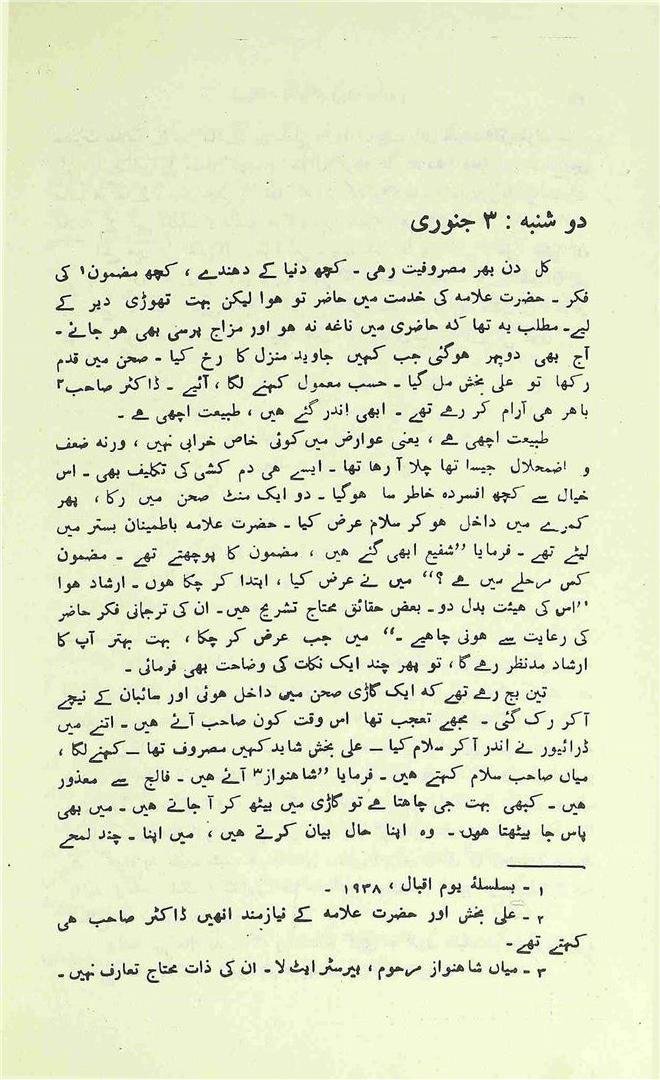 دو شنبہ : ۳ جنوری
کل دن بھر مصروفیت رھی ۔ کچھ دنیا کے دھندے ، کچھ مضمون۱ کی
فکر ۔ حضرت علامہ کی خدمت میں حاضر تو ھوا لیکن بہت تھوڑی دیر کے
لیے۔ مطلب یہ تھا کہ حاضری میں ناغہ نہ ھو اور مزاج پرسی بھی ھو جائے ۔
آج بھی دوپہر ھوگئی جب کہیں جاوید منزل کا رخ کیا ۔ صحن میں قدم
رکھا تو علی بخش مل گیا ۔ حسب معمول کہنے لگا ، آئیے ۔ ڈاکٹر صاحب۲
باھر ھی آرام کر رھے تھے ۔ ابھی اندر گئے ھیں ، طبیعت اچھی ھے ۔
طبیعت اچھی ھے ، یعنی عوارض میں کوئی خاص خرابی نہیں ، ورنہ ضعف
و اضمحلال جیسا تھا چلا آ رھا تھا ۔ ایسے ھی دم کشی کی تکلیف بھی ۔ اس
خیال سے کچھ افسردہ خاطر سا ھوگیا ۔ دو ایک منٹ صحن میں رکا ، پھر
کمرے میں داخل ھو کر سلام عرض کیا ۔ حضرت علامہ باطمینان بستر میں
لیٹے تھے ۔ فرمایا ”شفیع ابھی گئے ھیں ، مضمون کا پوچھتے تھے ۔ مضمون
کس مرحلے میں ھے ؟“ میں نے عرض کیا ، ابتدا کر چکا ھوں ۔ ارشاد ھوا
”اس کی ھیئت بدل دو ۔ بعض حقائق محتاج تشریح ھیں۔ ان کی ترجمانی فکر حاضر
کی رعایت سے ھونی چاھیے ۔“ میں جب عرض کر چکا ، بہت بہتر آپ کا
ارشاد مدنظر رھے گا ، تو پھر چند ایک نکات کی وضاحت بھی فرمائی ۔
تین بج رھے تھے کہ ایک گاڑی صحن میں داخل ھوئی اور سائبان کے نیچے
آ کر رک گئی ۔ مجھے تعجب تھا اس وقت کون صاحب آئے ھیں ۔ اتنے میں
ڈرائیور نے اندر آ کر سلام کیا – علی بخش شاید کہیں مصروف تھا – کہنے لگا ،
میاں صاحب سلام کہتے ھیں ۔ فرمایا ”شاھنواز۳ آئے ھیں ۔ فالج سے معذور
ھیں ۔ کبھی بہت جی چاھتا ھے تو گاڑی میں بیٹھ کر آ جاتے ھیں ۔ میں بھی
پاس جا بیٹھتا ھوں ۔ وہ اپنا حال بیان کرتے ھیں ، میں اپنا ۔ چند لمحے
۱ ۔ بسلسلۂ یوم اقبال ، ۱۹۳۸ ۔
۲ ۔ علی بخش اور حضرت علامہ کے نیازمند انھیں ڈاکٹر صاحب ھی
کہتے تھے ۔
۳ ۔ میاں شاھنواز مرحوم ، بیرسٹر ایٹ لا ۔ ان کی ذات محتاج تعارف نہیں ۔